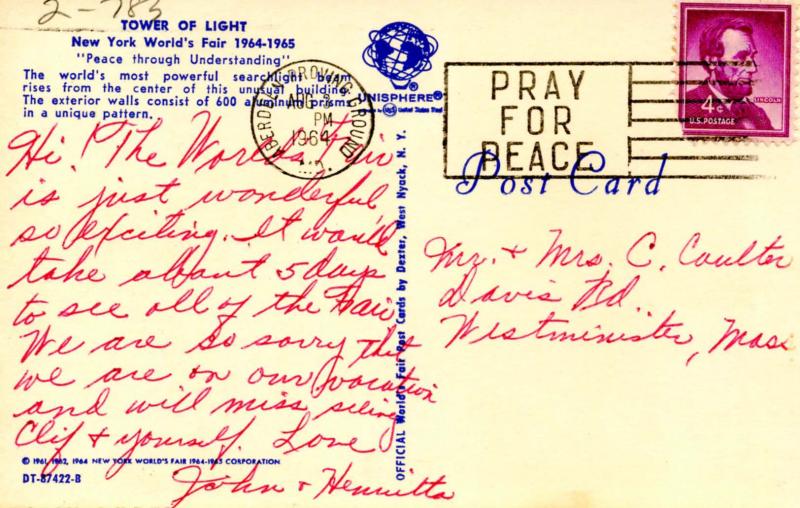 2-783
TOWER OF LIGHT
New York World's Fair 1964-1965
"Peace through Understanding"
The world's most powerful searchlight beam
rises from the center of this unusual building.
The exterior walls consist of 600 aluminum prisms
in a unique pattern.
UNISPHERE®
United States Steel
ABERDEEN PROVING GROUND
AUG
PM
1964
MD.
PRAY
FOR
PEACE
4¢
LINCOLN
U.S. POSTAGE
Post Card
Hi! The Worlds Fair
is just wonderful,
so exciting. It would
take about 5 days
to see all of the Fair
We are so sorry that
we are on our vacation
and will miss seeing
Clif & yourself. Love
John & Henrietta
Mr. & Mrs. C. Coulter
Davis Rd.
Westminister, Mass
OFFICIAL World's Fair Post Cards by Dexter, West Nyack, N. Y.
© 1961, 1962, 1964 NEW YORK WORLD'S FAIR 1964-1965 CORPORATION
DT-87422-B